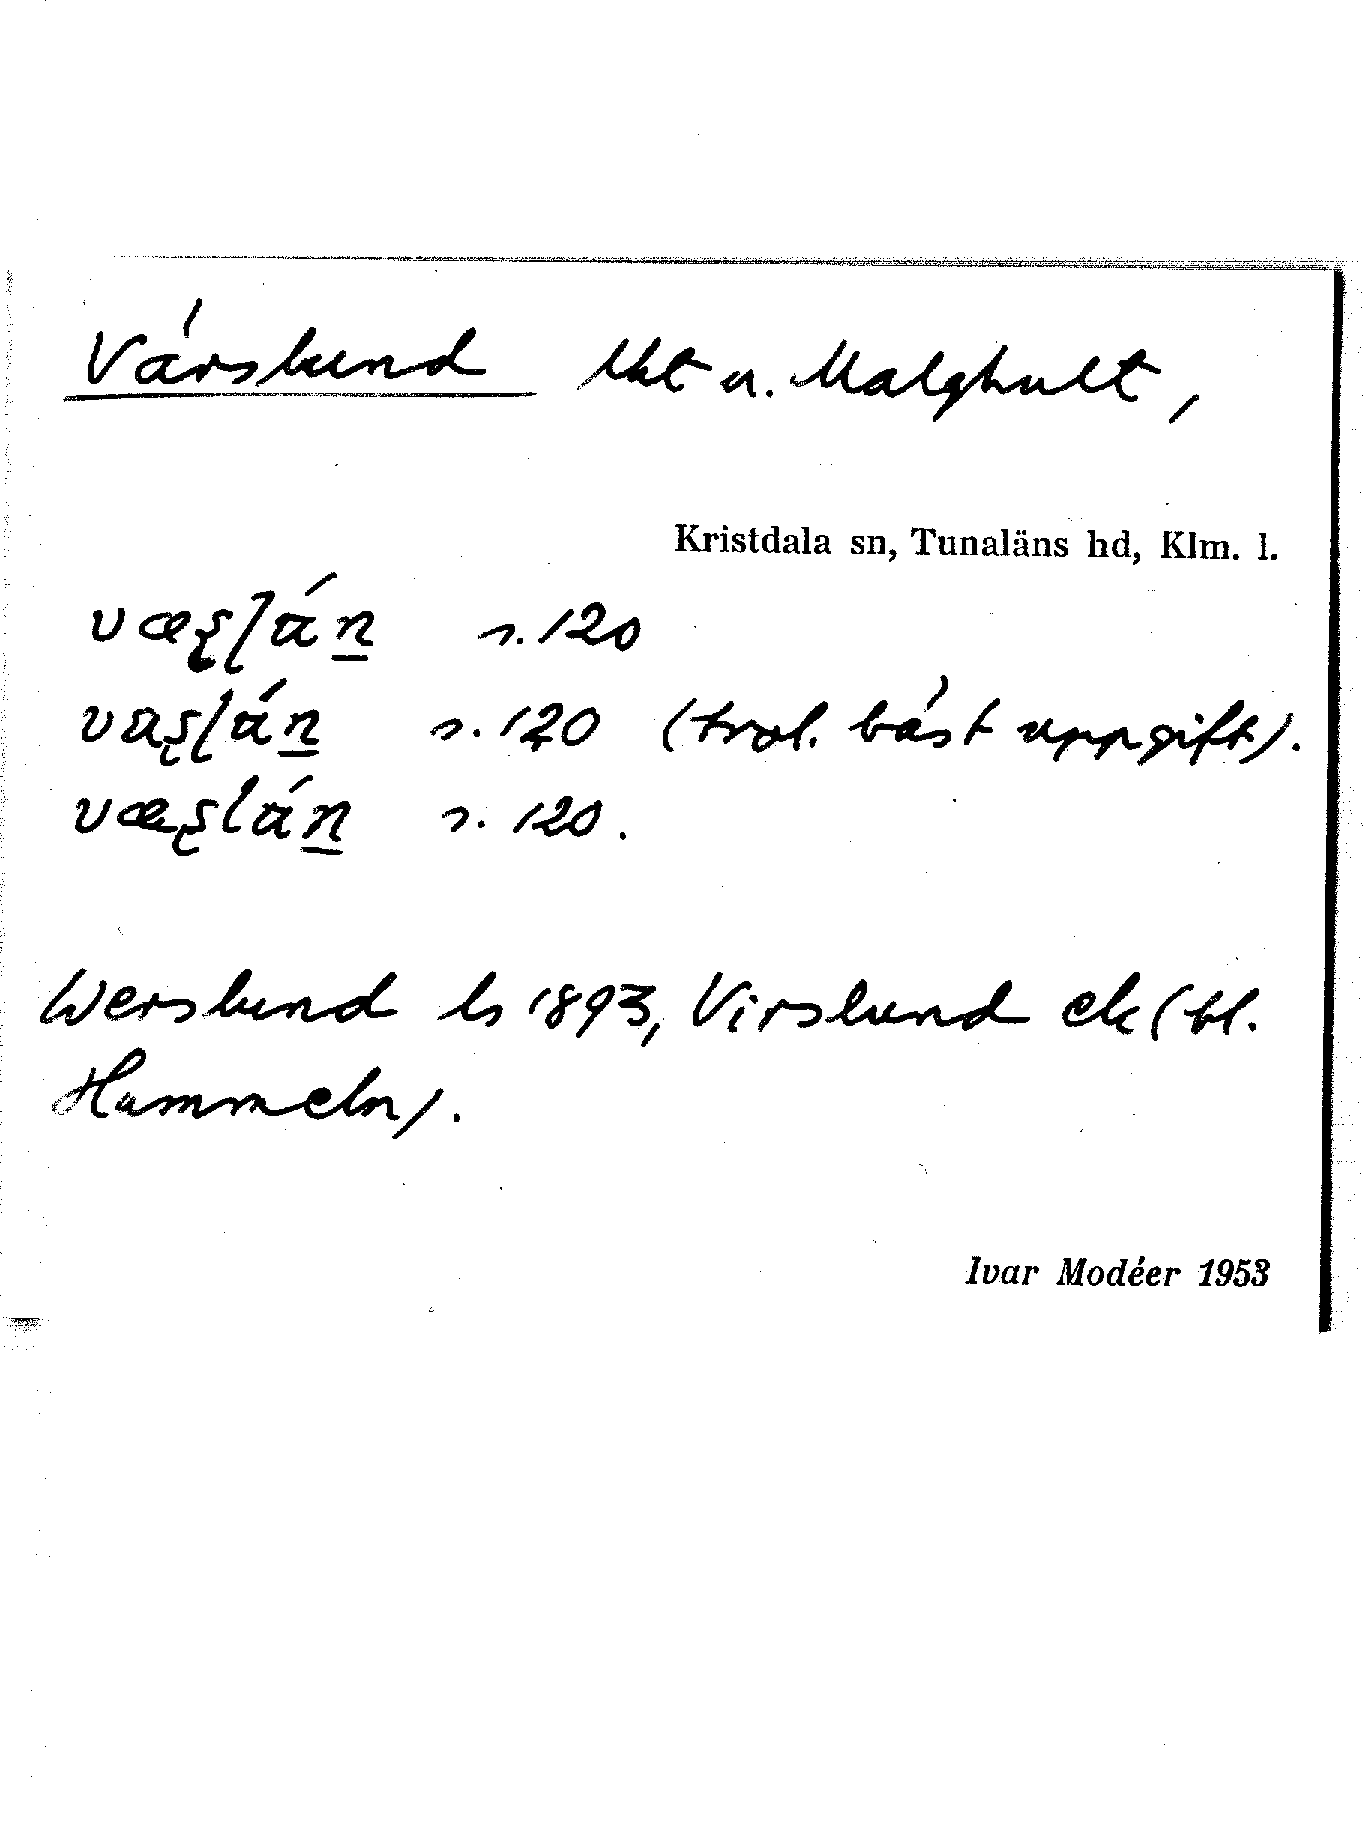 Värslund lht u. Malghult,
Kristdala sn, Tunaläns hd, Klm. l.
s. 120
s. 120 (trol. bäst uppgift).
s. 120.
Werslund ls 1893, Virslund ek (bl.
Hummeln).
Ivar Modéer 1953